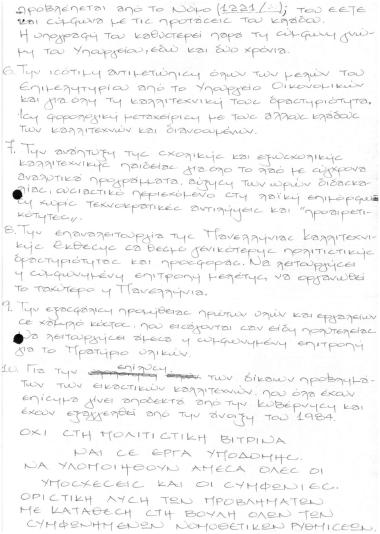 προβλέπεται από το Νόμο (1221/..); του ΕΕΤΕ
και σύμφωνα με τις προτάσεις του κλάδου.
Η υπογραφή του καθυστερεί παρά τη σύμφωνη γνώ-
μη του Υπουργείου, εδώ και δύο χρόνια.
6. Την ισότιμη αντιμετώπιση όλων των μελών του
Επιμελητηρίου από το Υπουργείο Οικονομικών
και για όλη τη καλλιτεχνική τους δραστηριότητα.
Ίση φορολογική μεταχείριση με τους άλλους κλάδους
των καλλιτεχνών και διανοουμένων.
7. Την ανάπτυξη της σχολικής και εξωσχολικής
καλλιτεχνικής παιδείας για όλο το λαό με σύγχρονα
αναλυτικά προγράμματα, αύξηση των ωρών διδασκα-
λίας, ουσιαστικό περιεχόμενο στη λαϊκή επιμόρφω-
ση χωρίς τεχνοκρατικές αντιλήψεις και "προαιρετι-
κότητες".
8. Την επαναλειτουργία της Πανελλήνιας Καλλιτεχνι-
κής Έκθεσης σα θεσμό γενικότερης πολιτιστικής
δραστηριότητας και προσφοράς. Να λειτουργήσει
η συμφωνημένη επιτροπή μελέτης, να οργανωθεί
το ταχύτερο η Πανελλήνια.
9. Την εξασφάλιση προμήθειας πρώτων υλών και εργαλείων
σε χαμηλό κόστος, που εισάγονται σαν είδη πολυτελείας
να λειτουργήσει άμεσα η συμφωνημένη επιτροπή
για το Πρατήριο υλικών.
10. Για την επίλυση των δίκαιων προβλημά-
των των εικαστικών καλλιτεχνών, που όλα έχουν
επίσημα γίνει αποδεκτά από την κυβέρνηση και
έχουν εξαγγελθεί από την άνοιξη του 1984.
ΟΧΙ ΣΤΗ ΠΟΛΙΤΙΣΤΙΚΗ ΒΙΤΡΙΝΑ
ΝΑΙ ΣΕ ΕΡΓΑ ΥΠΟΔΟΜΗΣ.
ΝΑ ΥΛΟΠΟΙΗΘΟΥΝ ΑΜΕΣΑ ΟΛΕΣ ΟΙ
ΥΠΟΣΧΕΣΕΙΣ ΚΑΙ ΟΙ ΣΥΜΦΩΝΙΕΣ.
ΟΡΙΣΤΙΚΗ ΛΥΣΗ ΤΩΝ ΠΡΟΒΛΗΜΑΤΩΝ
ΜΕ ΚΑΤΑΘΕΣΗ ΣΤΗ ΒΟΥΛΗ ΟΛΩΝ ΤΩΝ
ΣΥΜΦΩΝΗΜΕΝΩΝ ΝΟΜΟΘΕΤΙΚΩΝ ΡΥΘΜΙΣΕΩΝ.